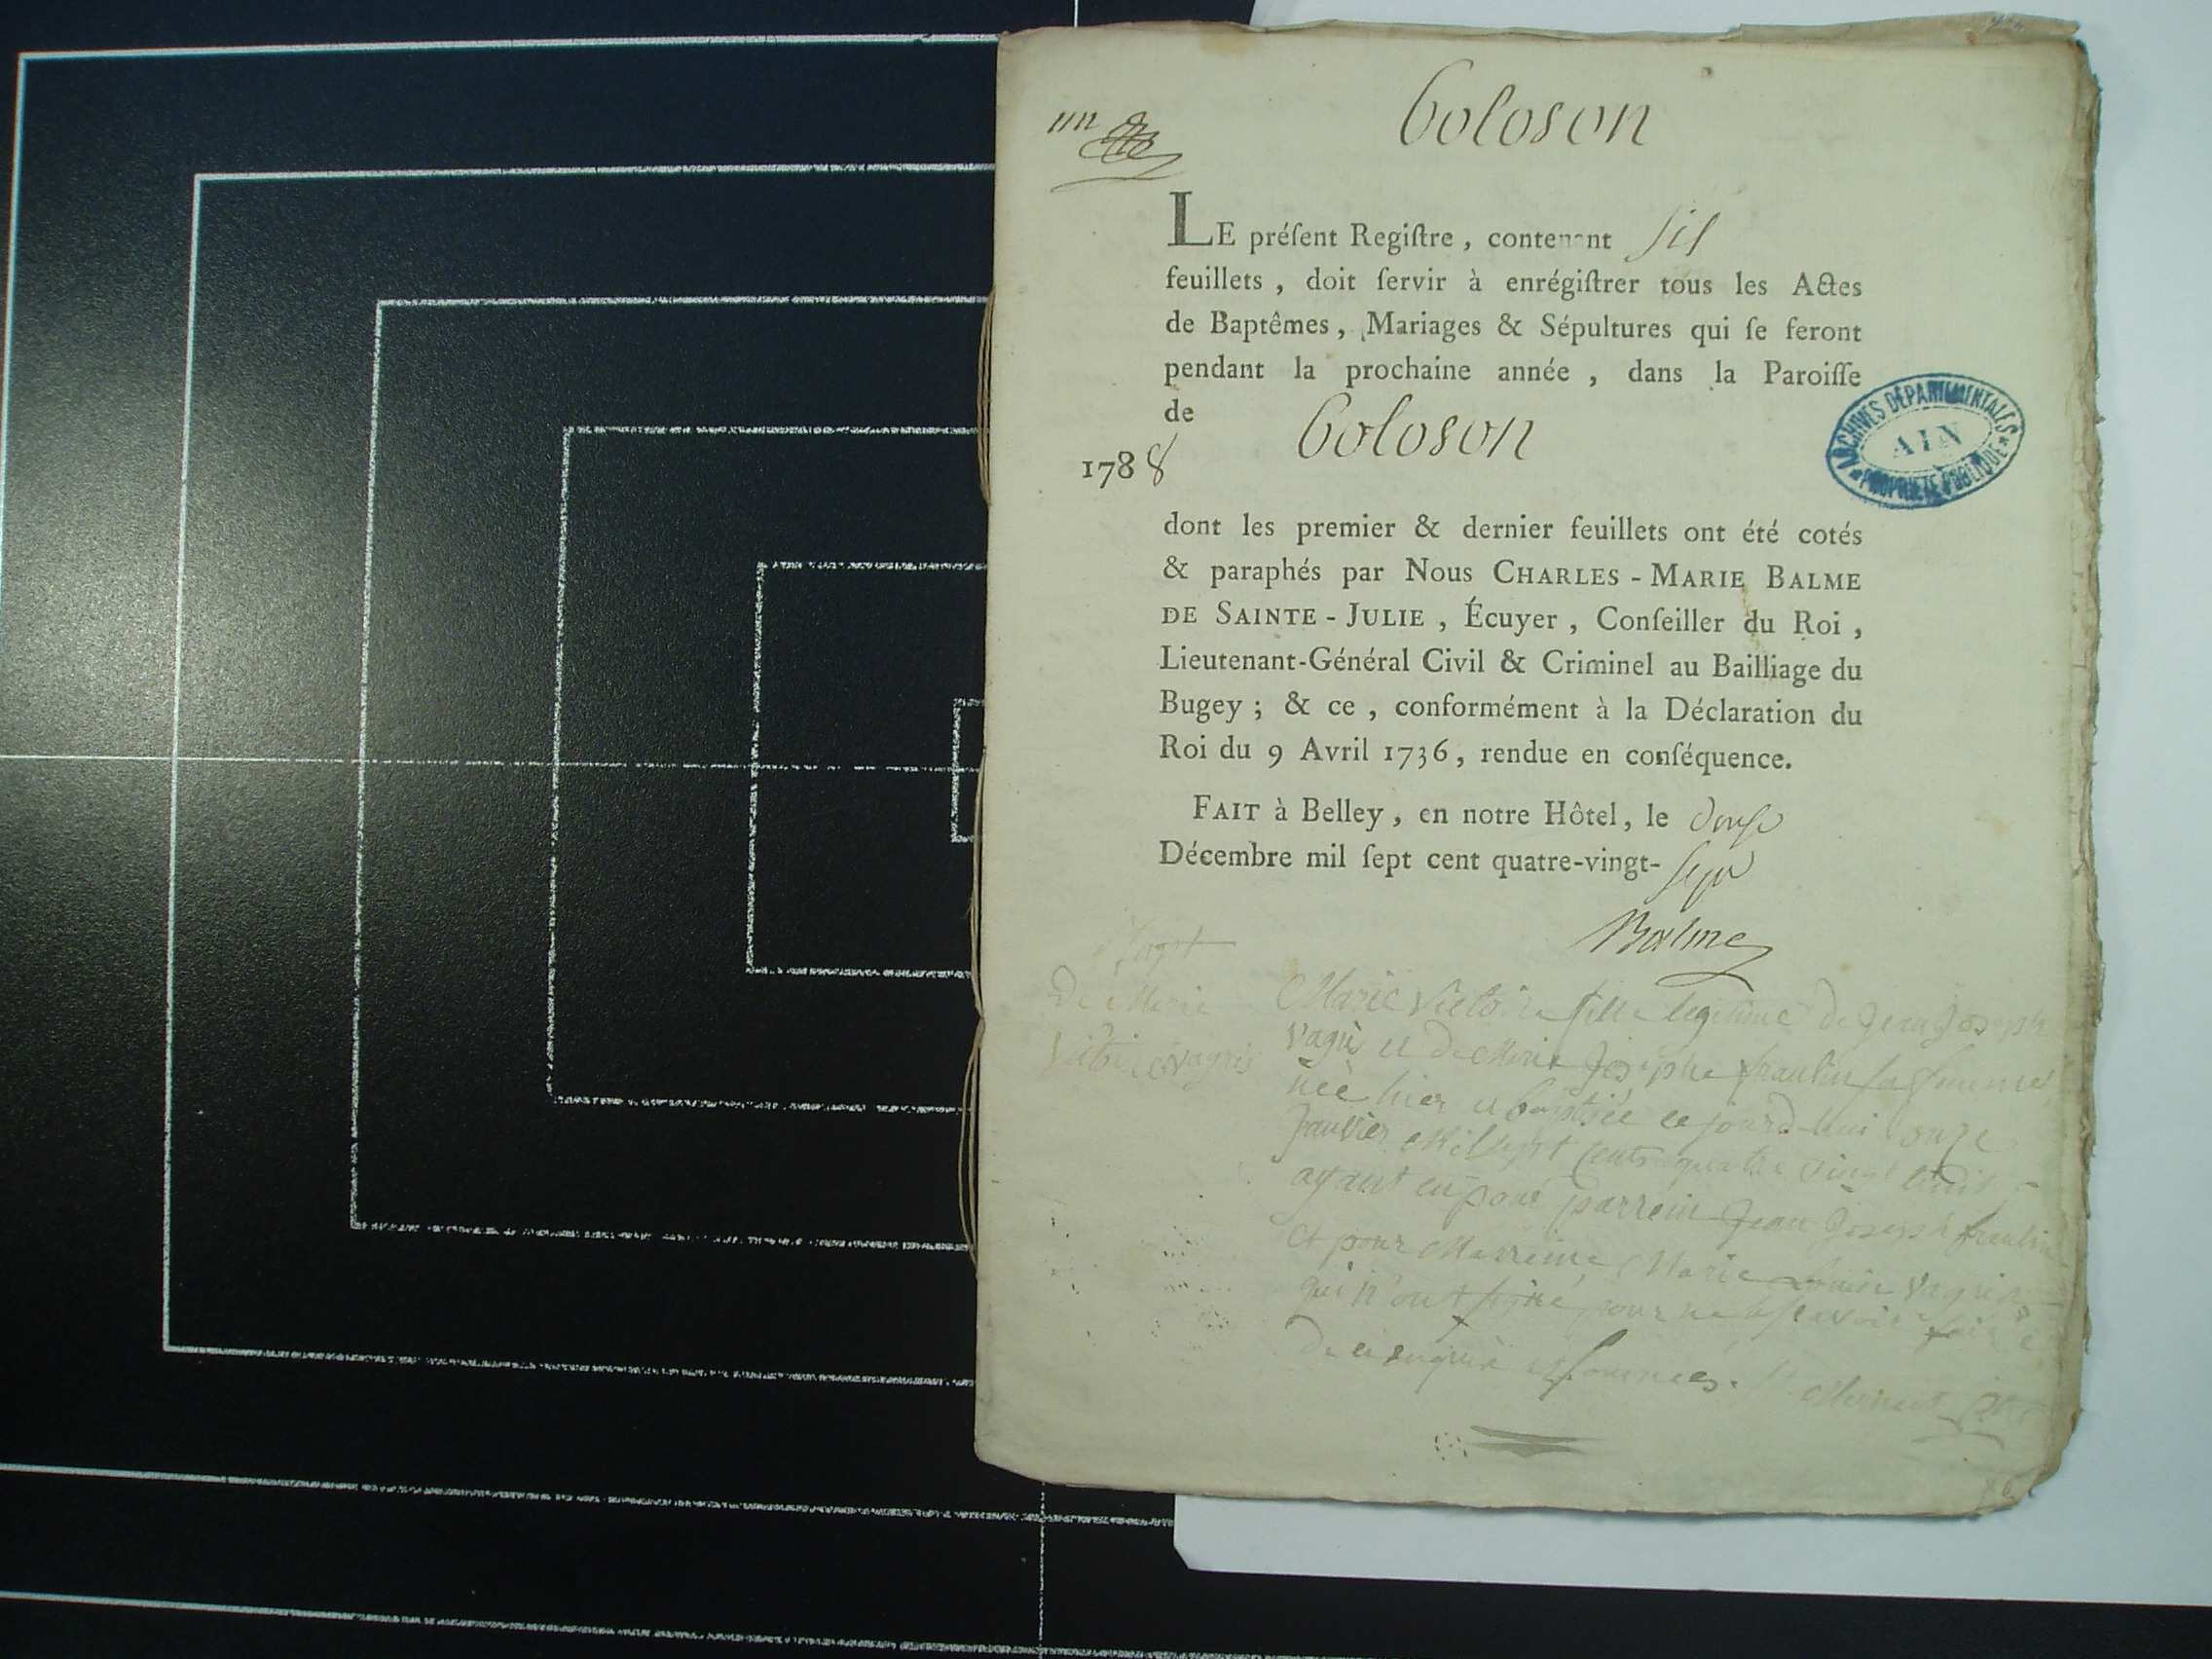 Coloson
LE préſent Regiſtre, contenant six
feuillets, doit ſervir à enrégiſtrer tous les Actes
de Baptêmes, Mariages & Sépultures qui ſe feront
pendant la prochaine année, dans la Paroiſſe
de Coloson
1788
ARCHIVES DÉPARTEMENTALES
AIN
PROPRIÉTÉ PUBLIQUE
dont les premier & dernier feuillets ont été cotés
& paraphés par Nous CHARLES-MARIE BALME
DE SAINTE-JULIE, Écuyer, Conſeiller du Roi,
Lieutenant-Général Civil & Criminel au Bailliage du
Bugey; & ce, conformément à la Déclaration du
Roi du 9 Avril 1736, rendue en conſéquence.
FAIT à Belley, en notre Hôtel, le douse
Décembre mil ſept cent quatre-vingt-sept
Balme
Bapt
de Marie
Marie Victoire fille legitime de Jean Joseph
et de Marie Josephe sa femme
née hier et baptisée ce jourd'hui onze
Janvier Mil sept cents quatre vingt huit
ayant eu pour parrein Jean Joseph
et pour Marreine Marie Louise
qui n'ont signé pour ne le savoir faire
de ce enquis et sommés.